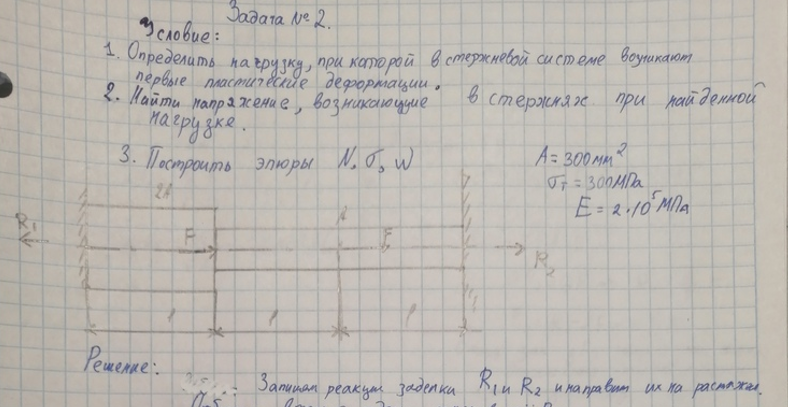 Задача № 2.
Условие:
1. Определить нагрузку, при которой в стержневой системе возникают
первые пластические деформации.
2. Найти напряжение, возникающие в стержнях при найденной
нагрузке.
3. Построить эпюры N, σ, w
A = 300 мм²
σт = 300 МПа
E = 2·10⁵ МПа
2A
A
R₁
F
F
R₂
l
l
l
Решение:
Запишем реакции заделки R₁ и R₂ и направим их на растяжен.